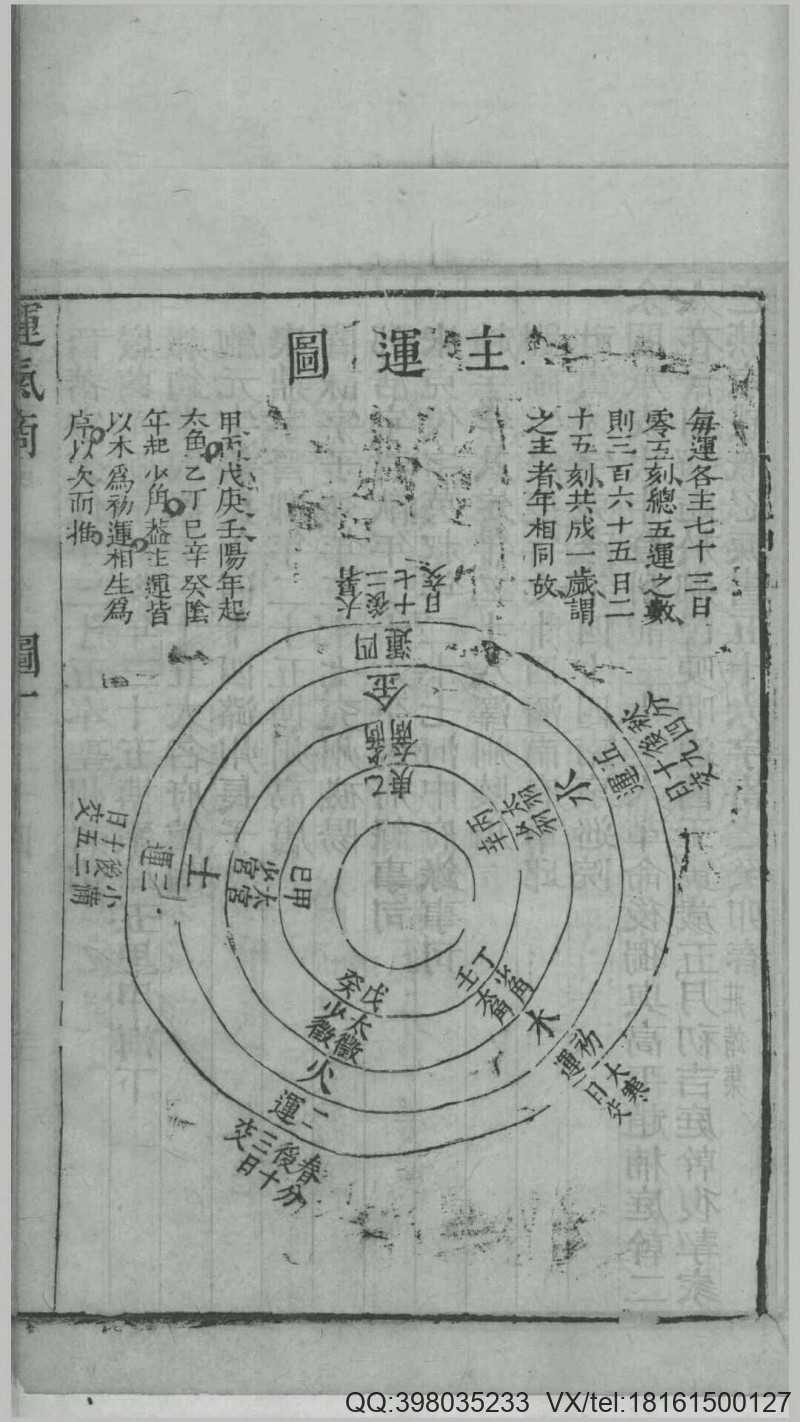 主運圖
每運各主七十三日
零五刻總五運之數
則三百六十五日二
十五刻共成一歲謂
之主者年相同故
甲丙戊庚壬陽年起
太角乙丁巳辛癸陰
年起少角葢主運皆
以木爲初運相生爲
序以次而推
大寒
日交
初運
木
太角
少角
丁壬
春分
後十
三日
交
二運
火
太徵
少徵
戊癸
小滿
後二
十五
日交
三運
土
太宮
少宮
甲巳
大暑
後二
十七
日交
四運
金
太商
少商
乙庚
後十九
日交
五運
水
太羽
少羽
丙辛
運氣
圖一
QQ:398035233 VX/tel:18161500127